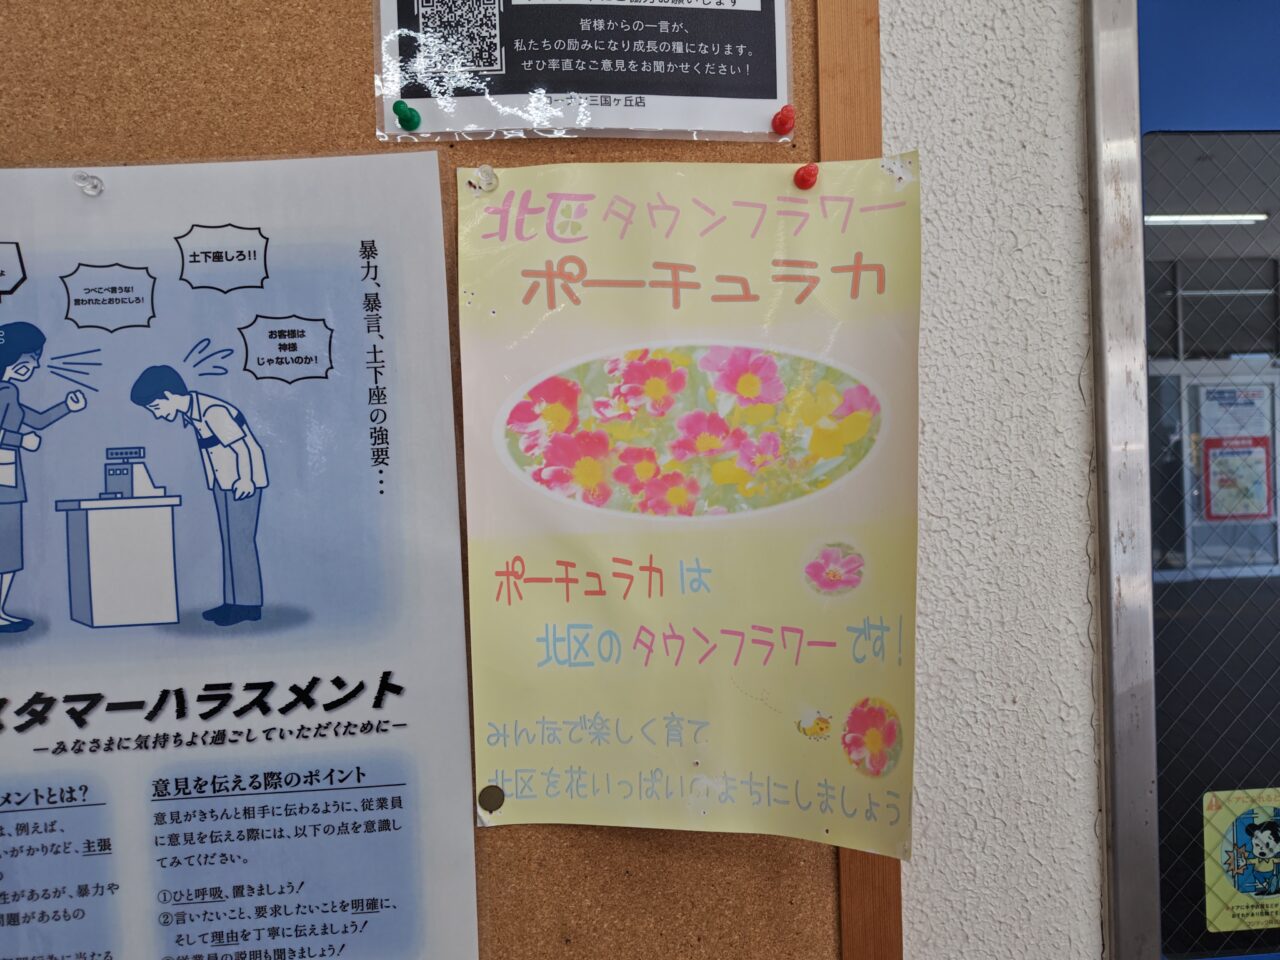 皆様からの一言が、
私たちの励みになり成長の糧になります。
ぜひ率直なご意見をお聞かせください！
コーナン三国ヶ丘店
土下座しろ!!
つべこべ言うな!
言われたとおりにしろ!
お客様は
神様
じゃないのか!
暴力、暴言、土下座の強要…
スタマーハラスメント
ーみなさまに気持ちよく過ごしていただくためにー
メントとは?
は、例えば、
いがかりなど、主張
性があるが、暴力や
問題があるもの
意見を伝える際のポイント
意見がきちんと相手に伝わるように、従業員
に意見を伝える際には、以下の点を意識し
てみてください。
①ひと呼吸、置きましょう!
②言いたいこと、要求したいことを明確に、
そして理由を丁寧に伝えましょう!
③従業員の説明も聞きましょう!
北区タウンフラワー
ポーチュラカ
ポーチュラカは
北区のタウンフラワーです!
みんなで楽しく育て
北区を花いっぱいのまちにしましょう